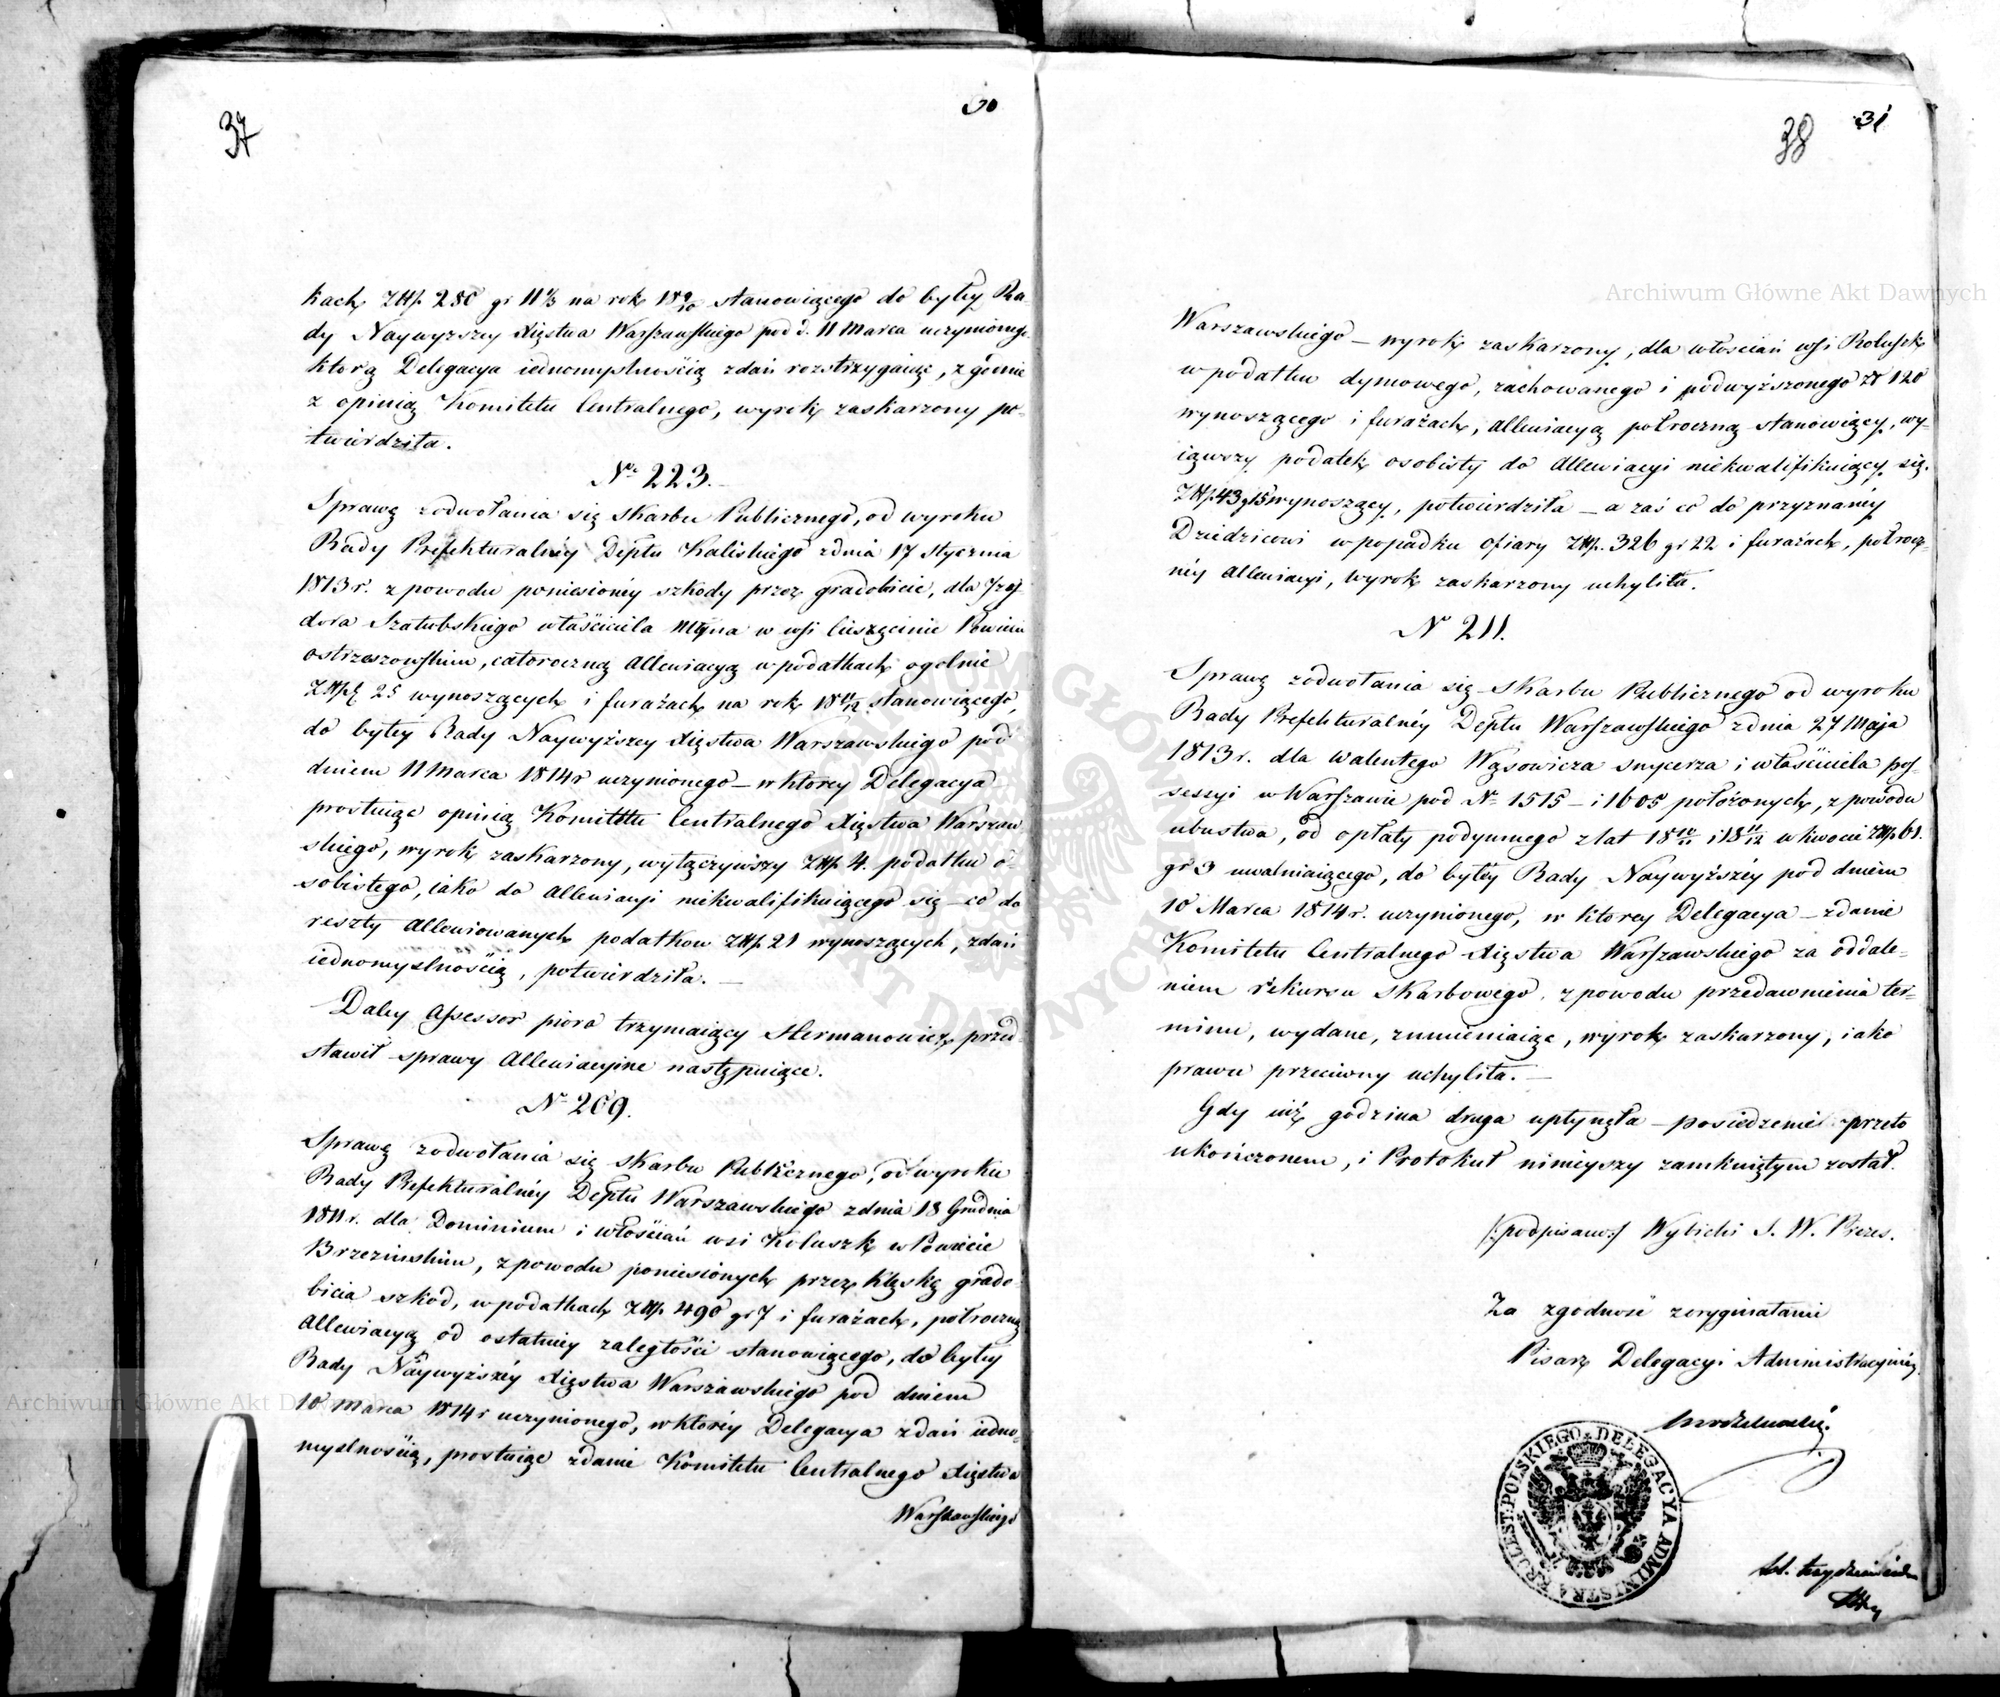 37
30
kach ZŁłp. 280 gr 11⅓ na rok 18 9/10 stanowiącego do byłey Ra-
dy Naywyższey Xięstwa Warszawskiego pod d. 11 Marca uczynionego
którą Delegacya iednomyslnością zdań rozstrzygaiąc, zgodnie
z opinią Komitetu Centralnego, wyrok zaskarzony po-
twierdziła.
No 223.
Sprawę z odwołania się Skarbu Publicznego, od wyroku
Rady Prefekturalnéy Deptu Kaliskiego z dnia 17 Stycznia
1813 r. z powodu poniesionéy szkody przez gradobicie, dla Jzy-
dora właściciela Młyna w wsi Powiecie
Ostrzeszowskim, całoroczną Allewiacyą w podatkach ogolnie
ZŁłp. 25 wynoszących i furażach na rok 18 11/12 stanowiącego,
do byłéy Rady Naywyższey Xięstwa Warszawskiego pod
dniem 11 Marca 1814 r uczynionego – w ktorey Delegacya
prostuiąc opinią Komitetu Centralnego Xięstwa Warszaw-
skiego, wyrok zaskarzony, wyłączywszy ZŁłp. 4. podatku o-
sobistego, iako do Allewiacyi niekwalifikuiącego się – co do
reszty Allewiowanych podatkow ZŁłp. 21 wynoszących, zdań
iednomyslnością, potwierdziła. –
Daley Assessor pioro trzymaiący Hermanowicz przed-
stawił sprawy Allewiacyine następuiące.
No 209.
Sprawę z odwołania się Skarbu Publicznego, od wyroku
Rady Prefekturalnéy Deptu Warszawskiego z dnia 13 Grudnia
1811 r. dla Dominium i włościan wsi Koluszk w Powiecie
Brzezinskim, z powodu poniesionych przez klęskę grado-
bicia szkod, w podatkach ZŁłp. 490 gr 7 i furażach, połroczną
Allewiacyą od ostatniey zaległości stanowiącego, do byłey
Rady Naywyższéy Xięstwa Warszawskiego pod dniem
10 Marca 1814 r uczynionego, w ktoréy Delegacya zdań iedno-
myslnością, prostuiąc zdanie Komitetu Centralnego Xięstwa
Warszawskiego
38
31
Warszawskiego – wyrok zaskarzony, dla włoscian wsi Koluszk
w podatku dymowego, zachowanego i podwyższonego Zł 120
wynoszącego i furażach, Allewiacyą połroczną stanowiący, wy-
iąwszy podatek osobisty do Allewiacyi niekwalifikuiący się
ZŁłp. 43 gr 15 wynoszący, potwierdziła – a zaś co do przyznanéy
Dziedzicowi w popadku ofiary ZŁłp. 326 gr 22 i furażach, połrocz-
néy Allewiacyi, wyrok zaskarzony uchyliła.
No 211.
Sprawę z odwołania się Skarbu Publicznego od wyroku
Rady Prefekturalnéy Deptu Warszawskiego z dnia 27 Maja
1813 r. dla Walentego Wąsowicza snycerza i właściciela pos-
sessyi w Warszawie pod No 1515 – i 1605 położonych, z powodu
ubustwa, od opłaty podymnego z lat 18 10/11 i 18 11/12 w kwocie ZŁłp. 61.
gr 3 uwalniaiącego, do byłéy Rady Naywyższéy pod dniem
10 Marca 1814 r. uczynionego, w ktorey Delegacya – zdanie
Komitetu Centralnego Xięstwa Warszawskiego za oddale-
niem rekursu Skarbowego, z powodu przedawnienia ter-
minu, wydane, zmieniaiąc, wyrok zaskarzony, iako
prawu przeciwny uchyliła. –
Gdy iuż godzina druga upłynęła – posiedzenie przeto
ukończonem, i Protokuł ninieyszy zamkniętym został.
/:podpisano:/ Wybicki S. W. Prezes.
Za zgodność z oryginałami
Pisarz Delegacyi Administracyinéy
KRÓLEST: POLSKIEGO DELEGACYA ADMINISTRA
Archiwum Główne Akt Dawnych
Archiwum Główne Akt Dawnych
ARCHIWUM GŁÓWNE AKT DAWNYCH